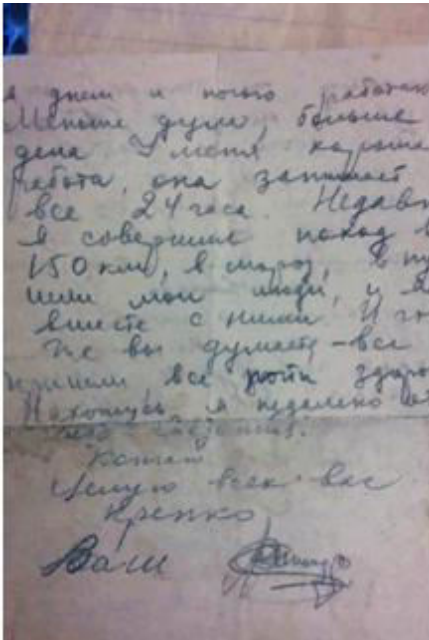 и днем и ночью работаю
Меньше дума, больше
дела У меня хорошая
работа, она занимает
все 24 часа. Недавн
я совершил поход в
150 км, в мороз, в пу
шли мои люди, и я
вместе с ними И
же вы думаете - все
пришли все здоро
Нахожусь я
Кончаю
Целую всех вас
крепко
Ваш